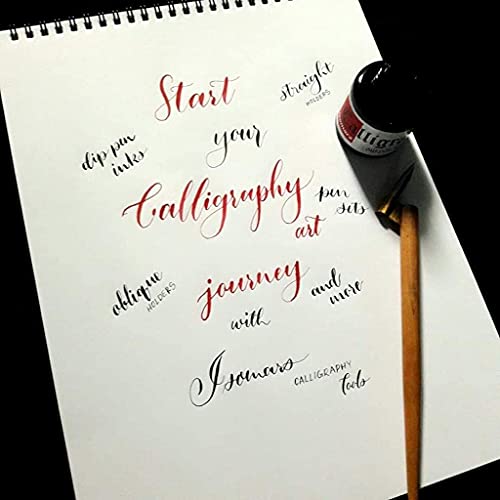 Start
straight
HOLDERS
your
dip pen
inks
Calligraphy
pen
sets
art
oblique
HOLDERS
journey
and
more
with
Isomars
CALLIGRAPHY
tools